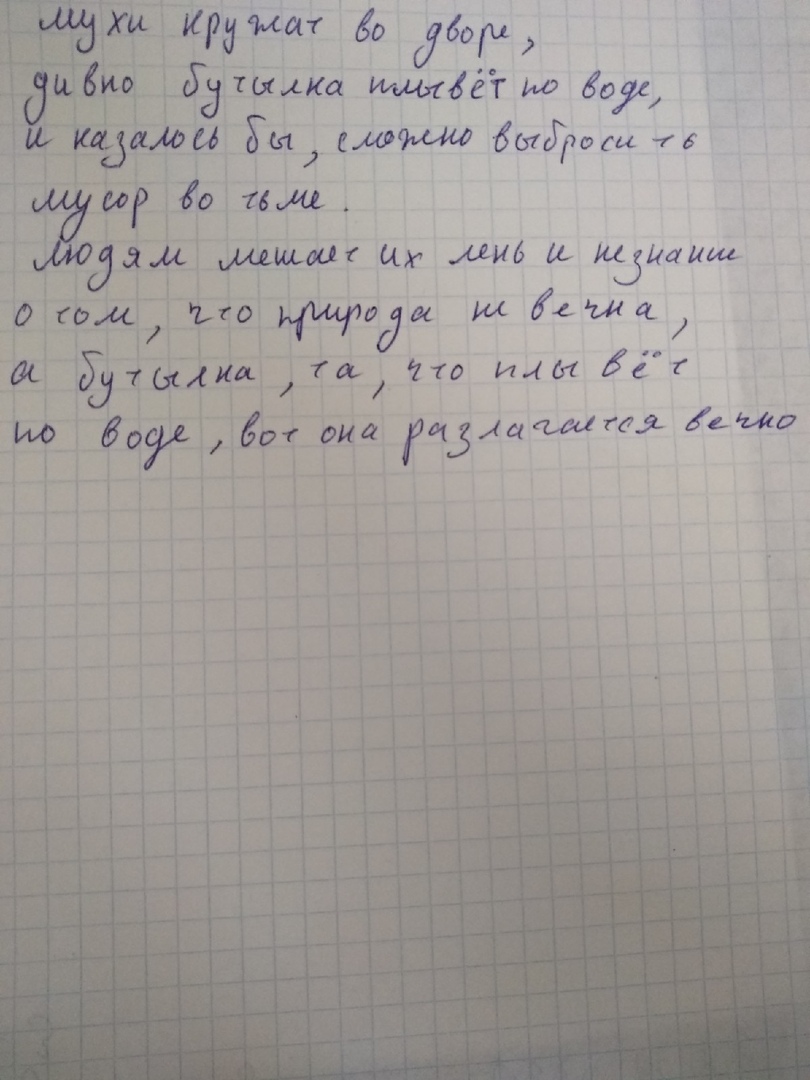 мухи кружат во дворе,
дивно бутылка плывёт по воде,
и казалось бы, сложно выбросить
мусор во тьме.
людям мешает их лень и незнание
о том, что природа не вечна,
а бутылка, та, что плывёт
по воде, вот она разлагается вечно